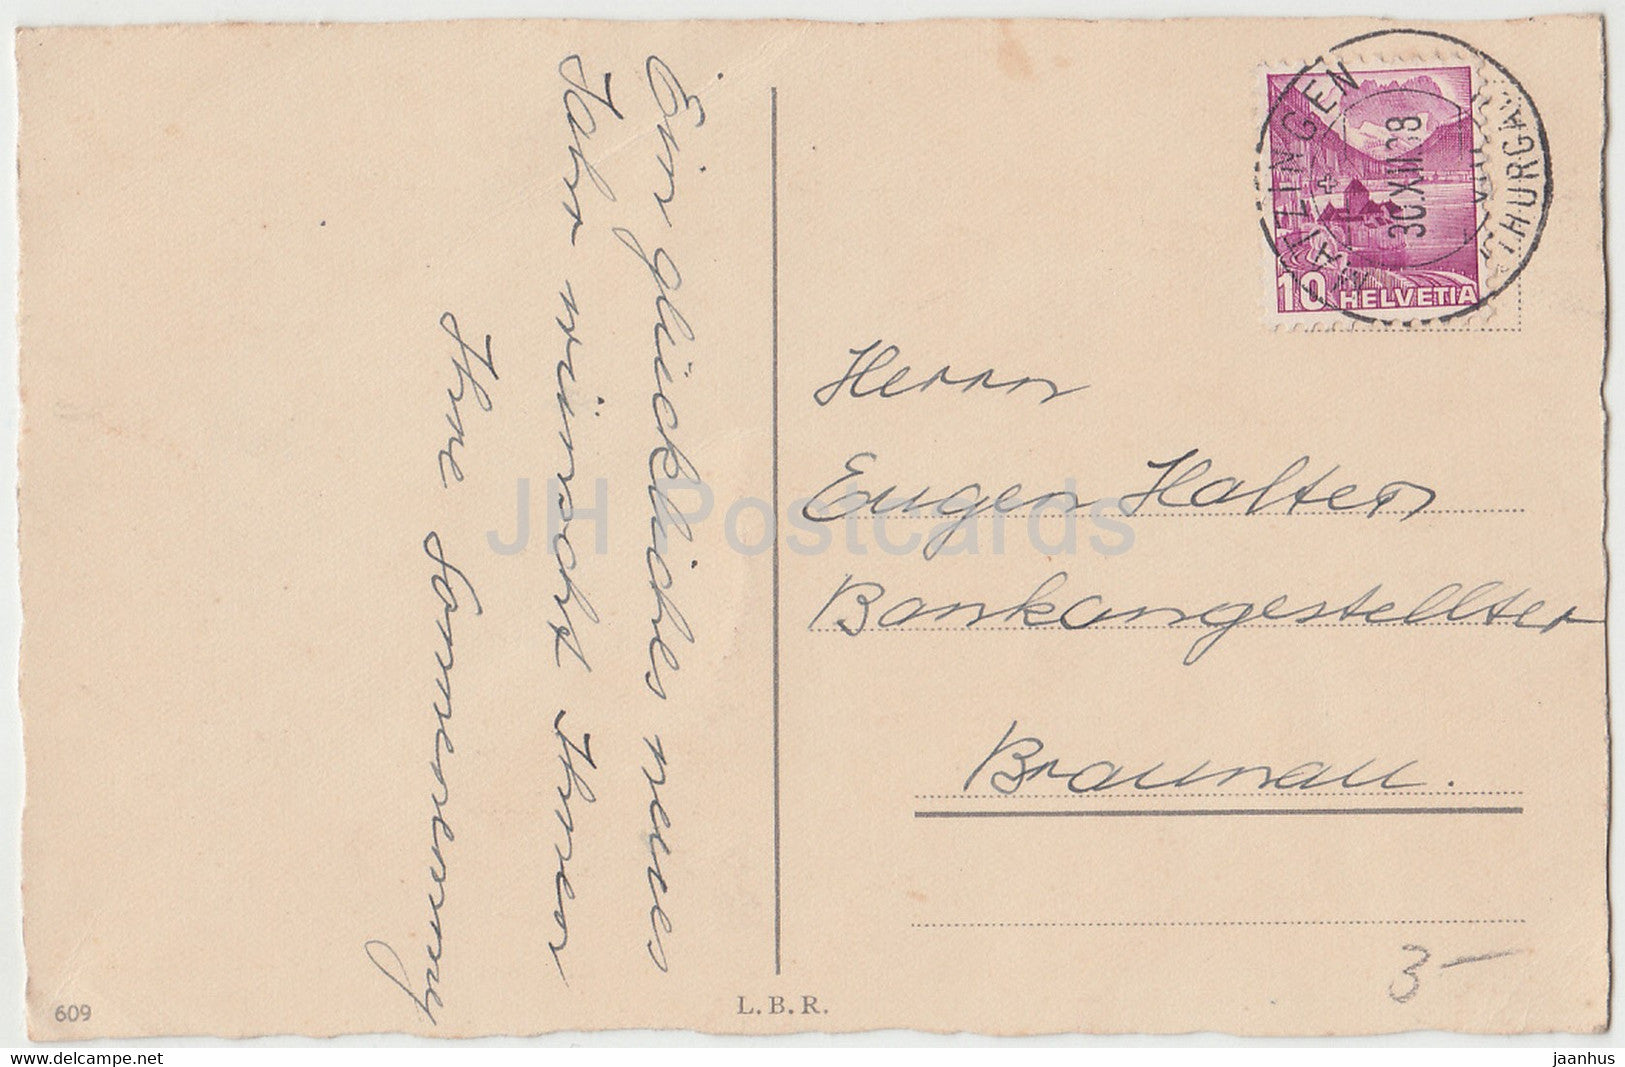 Ein glückliches neues
Jahr wünscht Ihnen
Ihre
MATZINGEN
THURGAU
30.XII.38
10 HELVETIA
Herrn
Eugen Halter
Bankangestellter
Braunau.
3-
609
L.B.R.
JH Postcards
www.delcampe.net
jaanhus